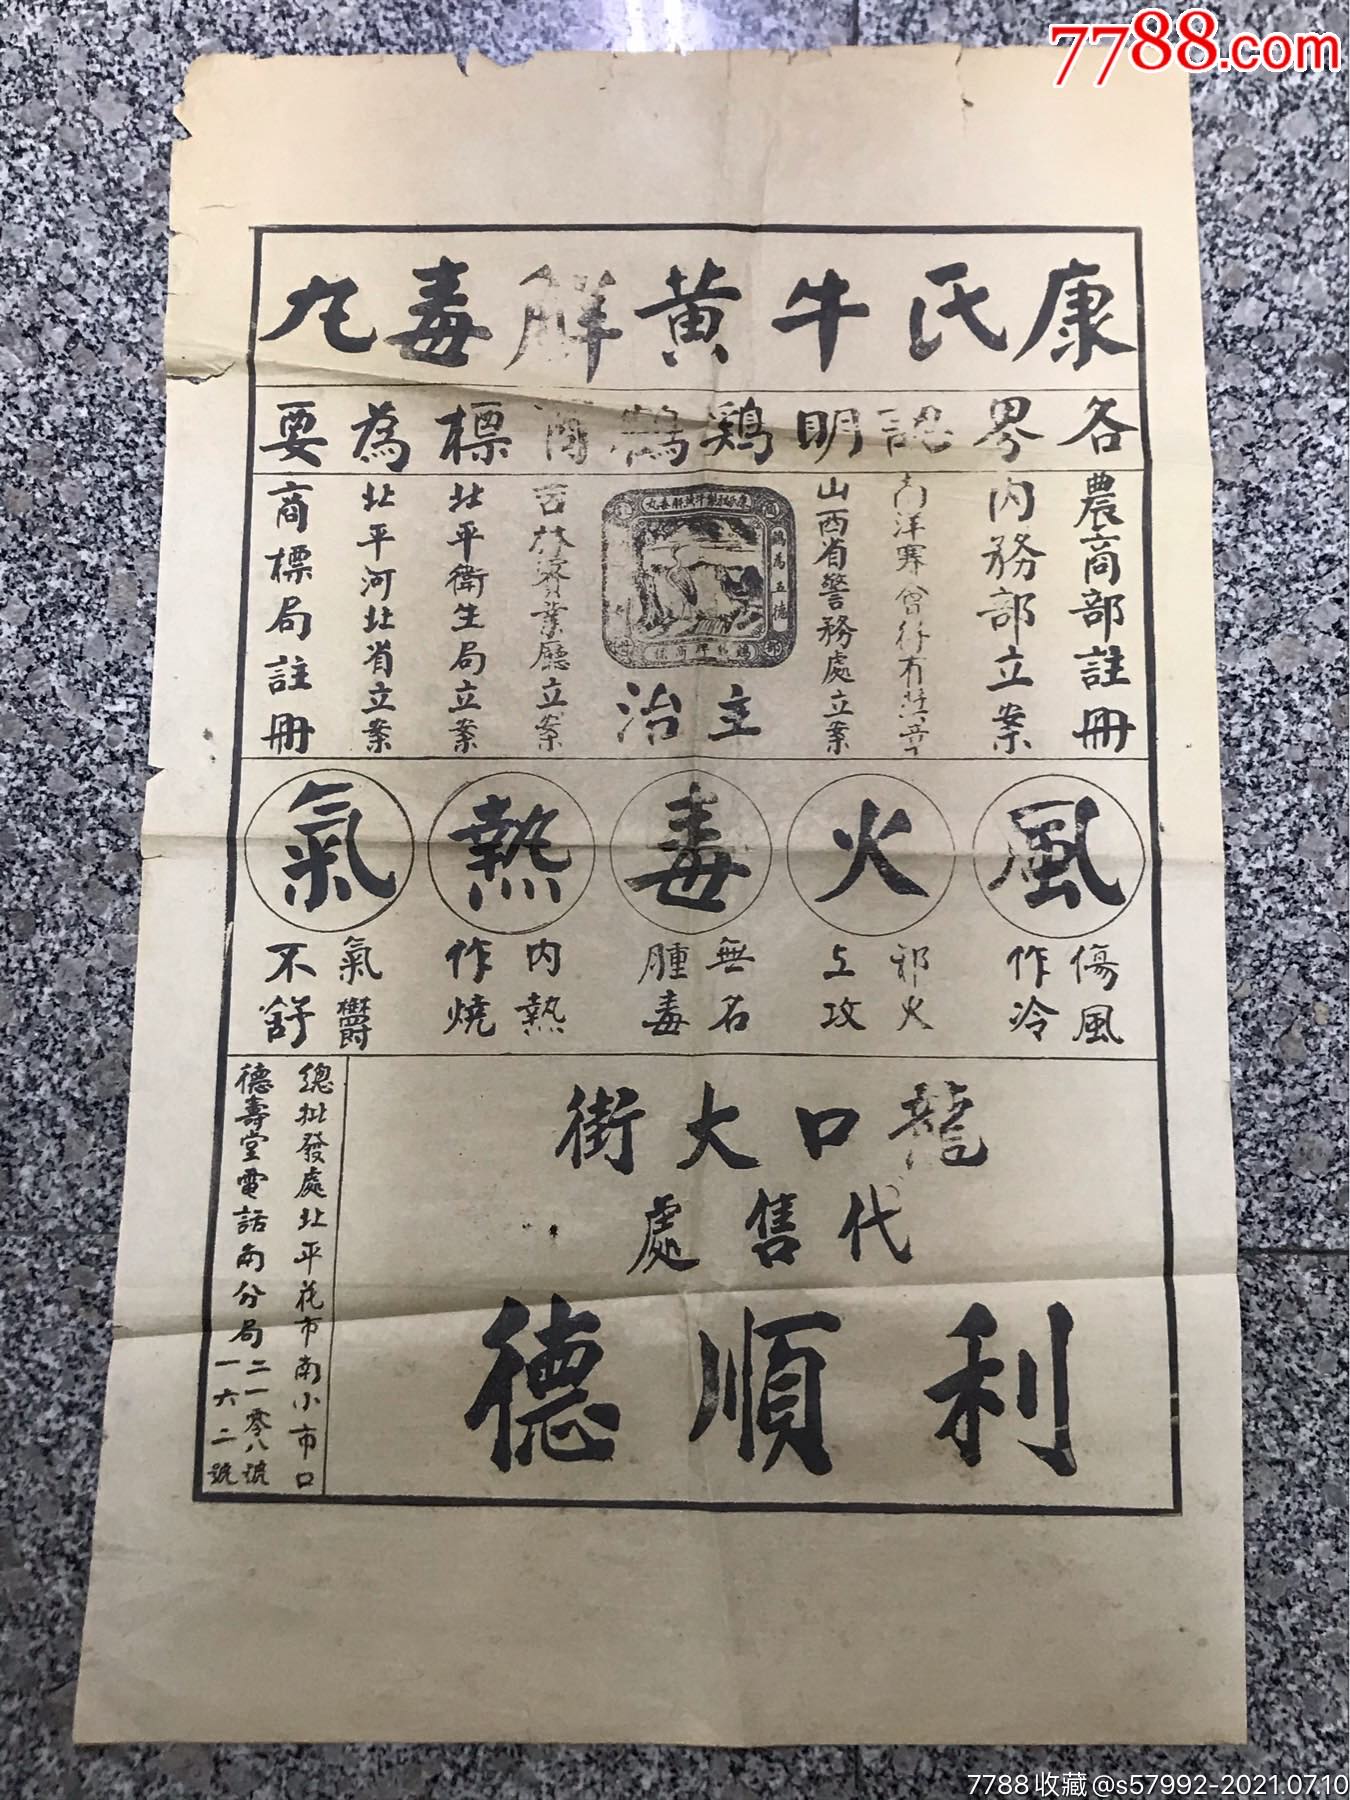 7788.com
康氏牛黃解毒丸
各界認明鷄鶴商標為要
農商部註冊
內務部立案
南洋賽會得有獎章
山西省警務處立案
主治
吉林濟業廳立案
北平衛生局立案
北平河北省立案
商標局註冊
風
火
毒
熱
氣
傷風作冷
邪火上攻
無名腫毒
內熱作燒
氣鬱不舒
龍口大街
代售處
利順德
總批發處北平花市南小市口
德壽堂電話南分局二一零八號
一六二號
7788收藏@s57992-2021.07.10